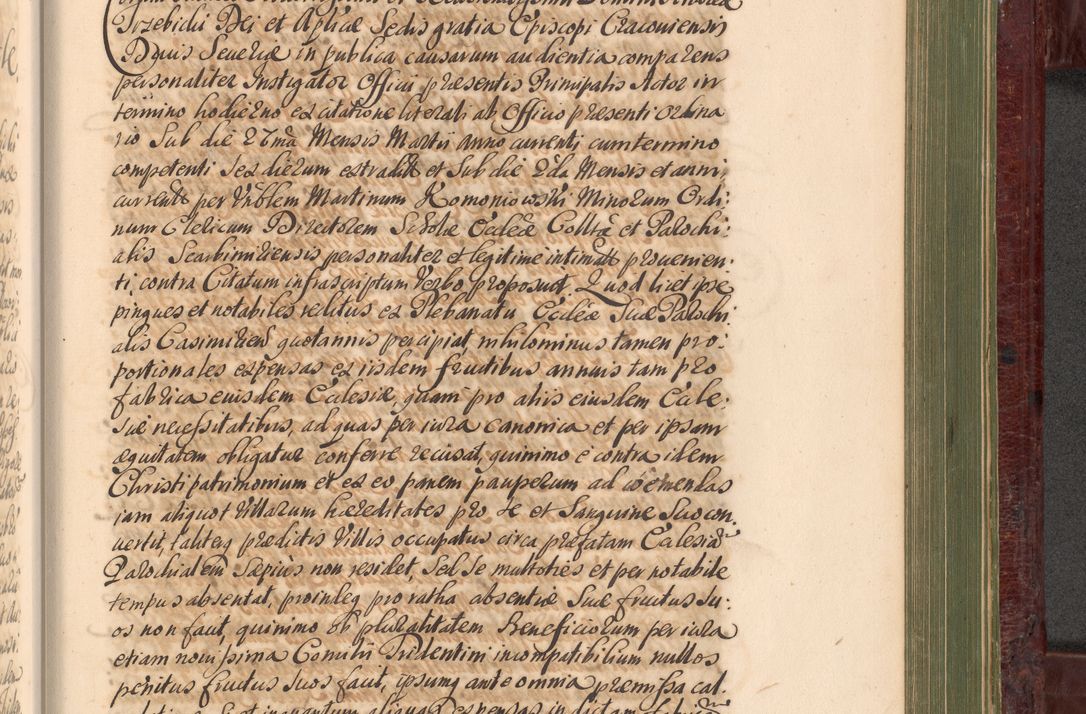 Trzebicki Dei et Aplicæ Sedis gratia Episcopi Cracoviensis
Ducis Severiæ in publica causarum audientia comparens
personaliter Instigator Officii præsentis Principalis Actor in
termino hodierno ex citatione literali ab Officio præsenti Ordina
rio Sub die 27ma Mensis Martii anno currenti cum termino
competenti sex dierum extradita et Sub die 2da Mensis et anni
currentis per Vnblem Martinum Komoniowski Minorum Ordi:
num Clericum Directorem Scholæ Ecclæ Colltæ et Parochi:
alis Scarbimiriensis personaliter et legitime intimata provenien:
ti, contra Citatum infrascriptum Verbo proposuit, Quod licet ipse
pingues et notabiles reditus ex Plebanatu Ecclæ Suæ Parochi
alis Casimirien quotannis percipiat, nihilominus tamen pro:
portionales expensas ex iisdem fructibus annuis tam pro
fabrica eiusdem Ecclesiæ, quam pro aliis eiusdem Eccle:
siæ necessitatibus, ad quas per iura canonica et per ipsam
æquitatem obligatur conferre recusat, quinimo e contra idem
Christi patrimonium et ex eo panem pauperum ad coemendas
iam aliquot Villarum hæreditates pro se et Sanguine Suo con:
vertit, taliterq prædictis Villis occupatus circa præfatam Ecclesiã
Parochialem Sæpius non residet, Sed se multoties et per notabile
tempus absentat, proindeq pro ratha absentiæ Suæ fructus Su:
os non facit, quinimo ob pluralitatem Beneficiorum per iura
etiam novissima Concilii Tridentini incompatibilium nullos
penitus fructus Suos facit, ipsumq ante omnia præmissa cal.